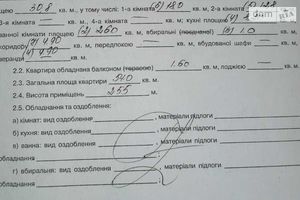 площею 30.8 кв. м., у тому числі: 1-а кімната 18.0 кв. м, 2-а кімната 12.8
3-я кімната кв. м., 4-а кімната кв. м; кухні площею
ванної кімнати площею 2.60 кв. м, вбиральні 1.0 кв. м
коридору 4.90 кв. м, передпокою — кв. м, вбудованої шафи кв. м,
веранди кв. м.
2.2. Квартира обладнана балконом 1.60 кв. м, лоджією кв. м.
2.3. Загальна площа квартири 54.0 кв. м.
2.4. Висота приміщень 2.55 м.
2.5. Обладнання та оздоблення:
а) кімнат: вид оздоблення , матеріали підлоги
б) кухня: вид оздоблення , матеріали підлоги
в) ванна: вид оздоблення , матеріали підлоги
обладнання
г) вбиральня: вид оздоблення , матеріали підлоги
обладнання